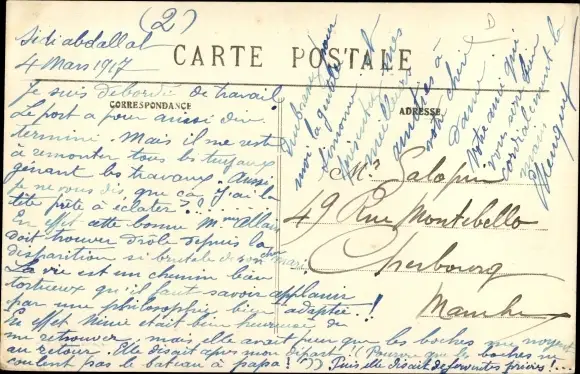 (2)
Sidi abdallah
4 Mars 1917
CARTE POSTALE
CORRESPONDANCE
ADRESSE
Je suis débordé de travail
Le port a pour ainsi dire
terminé. Mais il me reste
à remonter tous les tuyaux
gênant les travaux. Aussi
je ne vous dis que ça. J'ai la
tête prête à éclater ?!....
En effet cette bonne Mme Allain
doit trouver drôle depuis la
disparition si brutale de son cher mari
La vie est un chemin bien
tortueux qu'il faut savoir applanir
par une philosophie bien adaptée!
En effet Mimie était bien heureuse de
me retrouver, mais elle avait peur que les boches me noyent
au retour. Elle disait après mon départ (Pourvu que les boches ne
coulent pas le bateau à papa!)) Puis elle disait de ferventes prières!...
Embrassez pour
moi la petite
Simone et
présentez mes
meilleures
amitiés à
votre chère
Dame
Votre ami qui
vous serre bien
cordialement la
main
Mr Galopin
49 Rue Montebello
Cherbourg
Manche